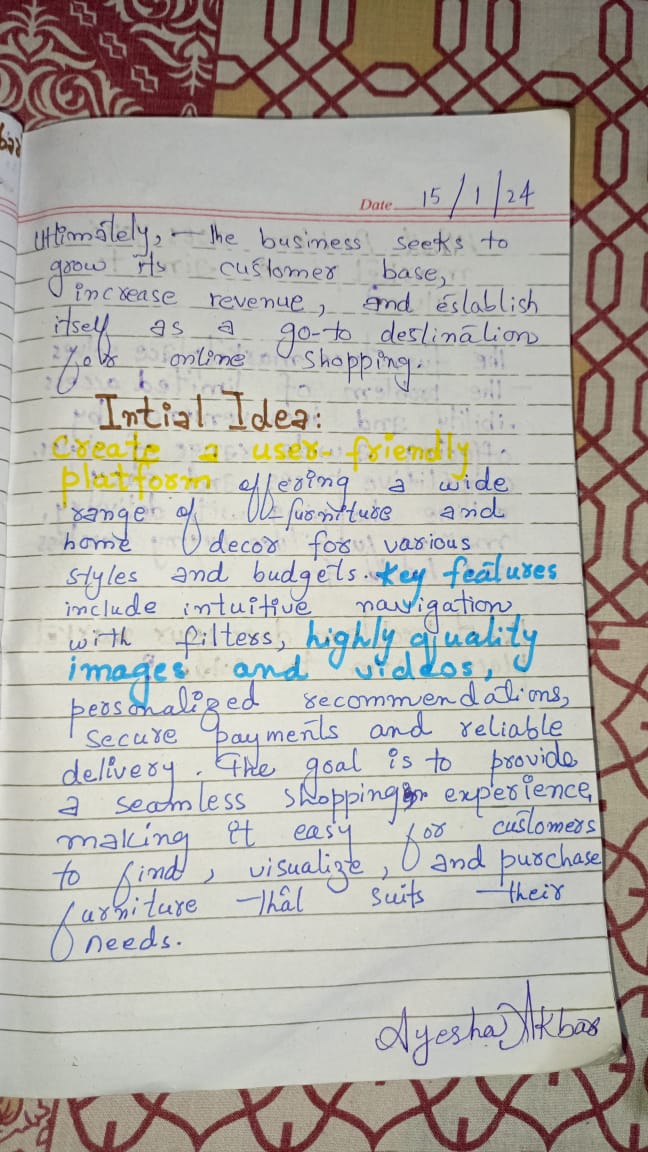 Date 15/1/24
Ultimately, the business seeks to
grow its customer base,
increase revenue, and establish
itself as a go-to destination
for online shopping.
Intial Idea:
Create a user-friendly
platform offering a wide
range of furniture and
home decor for various
styles and budgets. Key features
include intuitive navigation
with filters, highly quality
images and videos,
personalized recommendations,
secure payments and reliable
delivery. The goal is to provide
a seamless shopping experience,
making it easy for customers
to find, visualize, and purchase
furniture that suits their
needs.
Ayesha Akbar